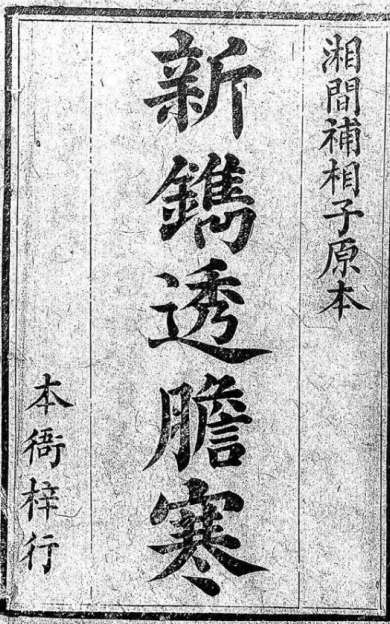 湘間補相子原本
新鐫透膽寒
本衙梓行